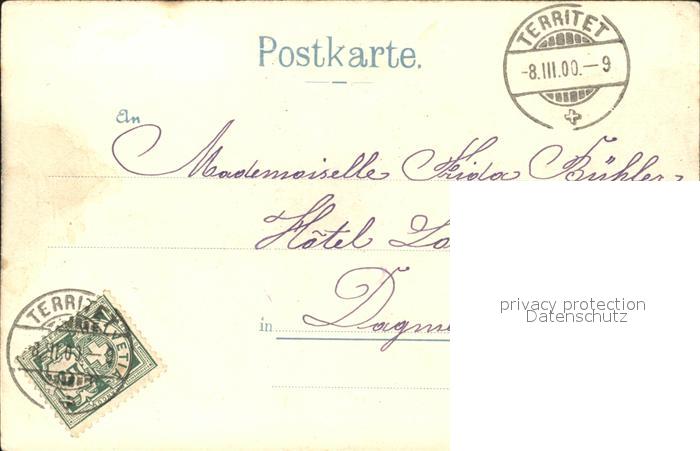 Postkarte.
TERRITET
-8.III.00.-9
An
Mademoiselle Frida Bühler
Hôtel
privacy protection
Datenschutz
in
TERRITET
HELVETIA